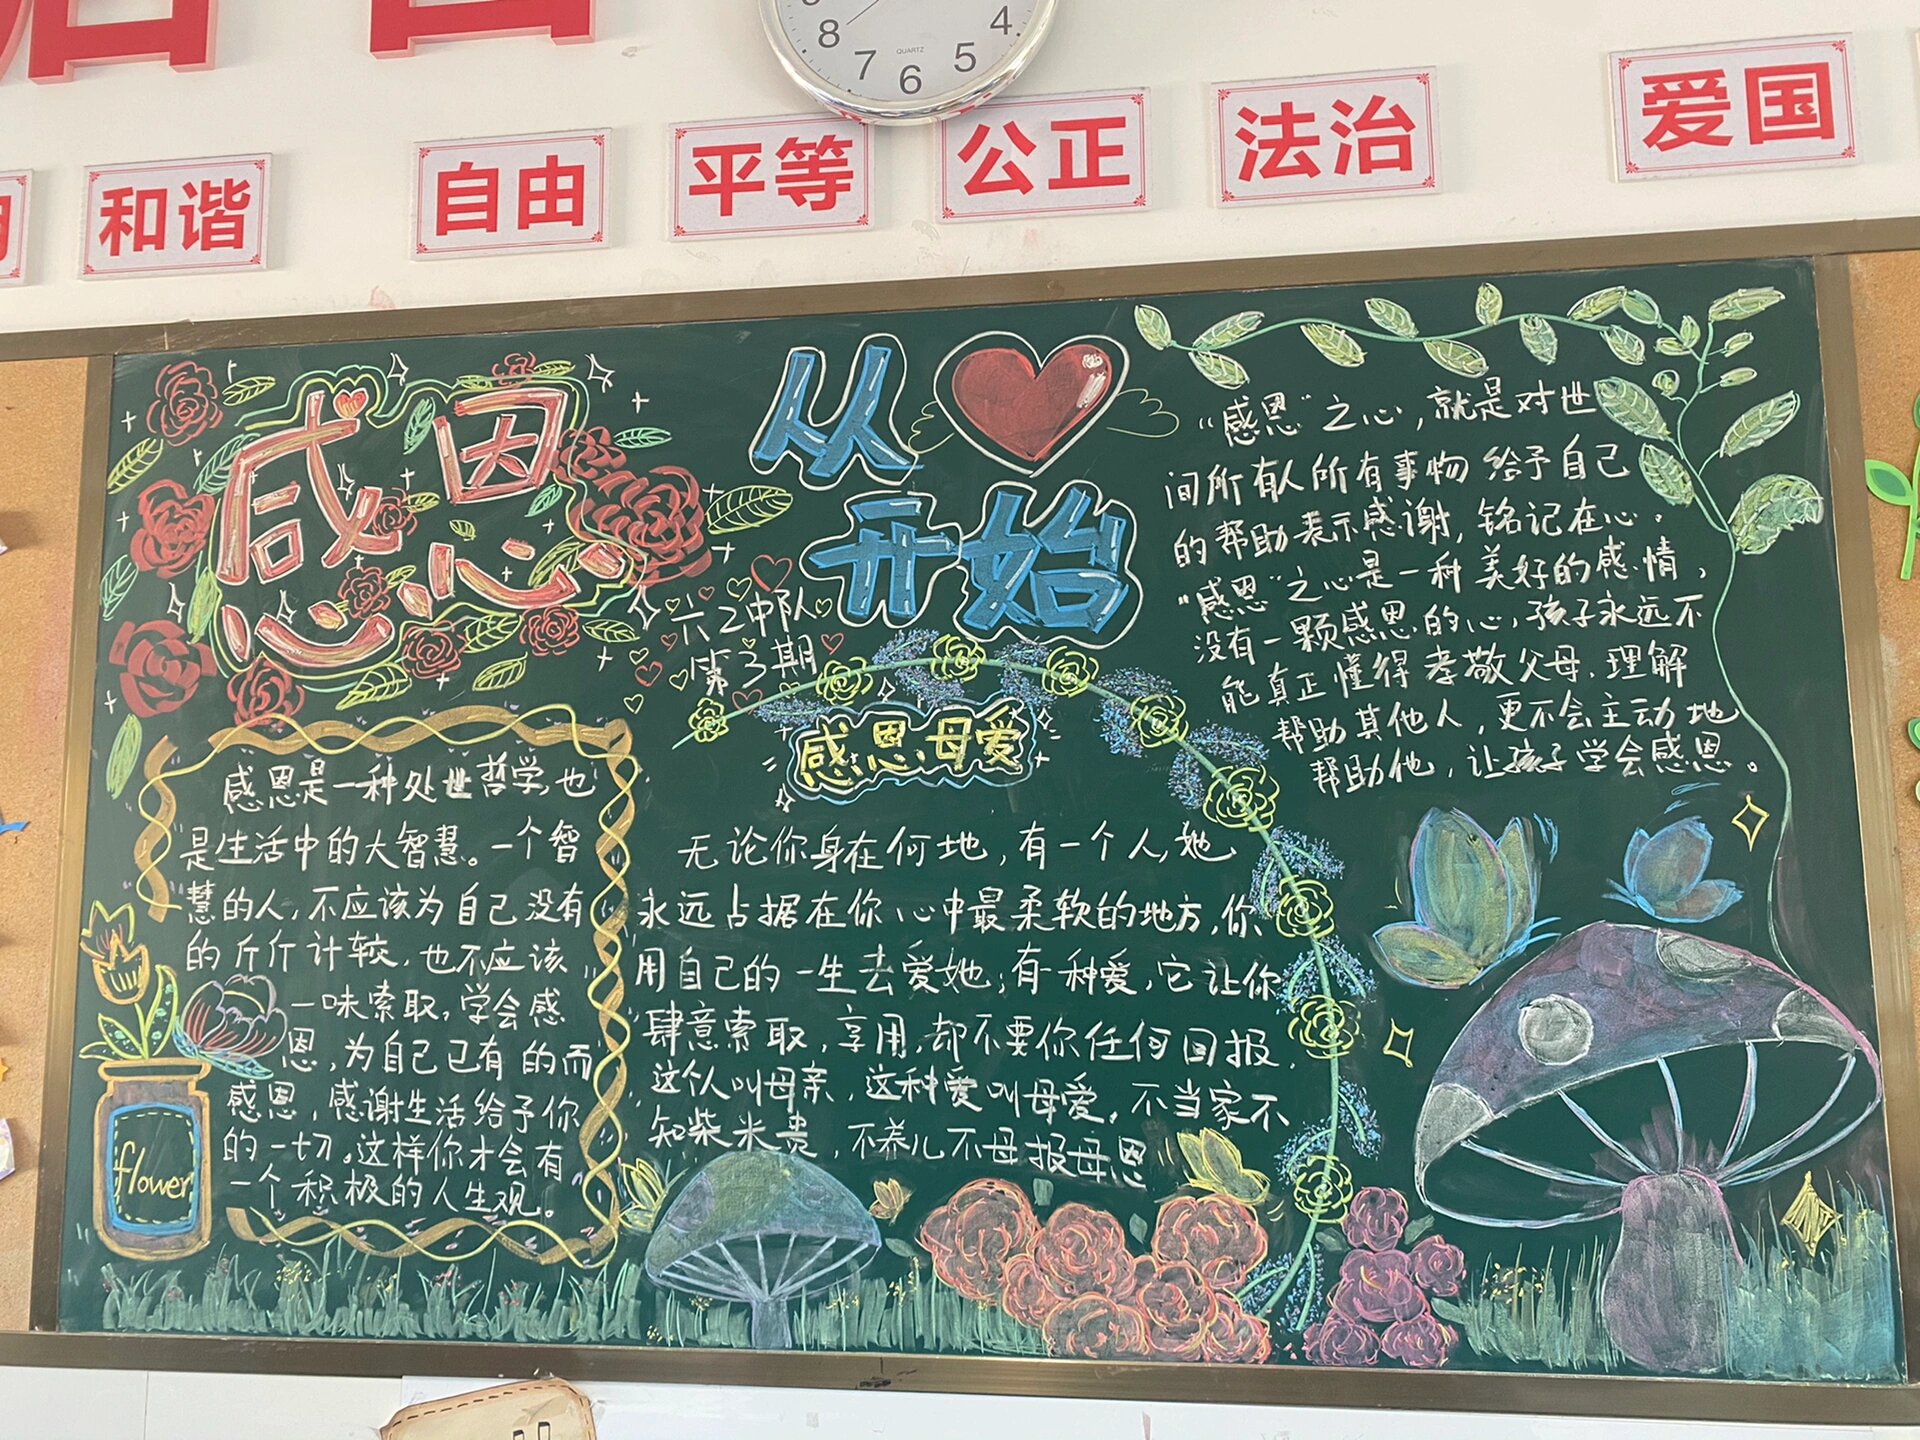 8 7 6 5 4
QUARTZ
和谐
自由
平等
公正
法治
爱国
感恩
从
开始
六2中队
第3期
感恩是一种处世哲学,也
是生活中的大智慧。一个智
慧的人,不应该为自己没有
的斤斤计较,也不应该
一味索取,学会感
恩,为自己已有的而
感恩,感谢生活给予你
的一切。这样你才会有
一个积极的人生观。
flower
感恩母爱
无论你身在何地,有一个人,她
永远占据在你心中最柔软的地方,你
用自己的一生去爱她;有一种爱,它让你
肆意索取,享用,却不要你任何回报.
这个人叫母亲,这种爱叫母爱。不当家不
知柴米贵,不养儿不母报母恩
“感恩”之心,就是对世
间所有人所有事物给予自己
的帮助表示感谢,铭记在心.
“感恩”之心是一种美好的感情,
没有一颗感恩的心,孩子永远不
能真正懂得孝敬父母.理解
帮助其他人,更不会主动地
帮助他,让孩子学会感恩。